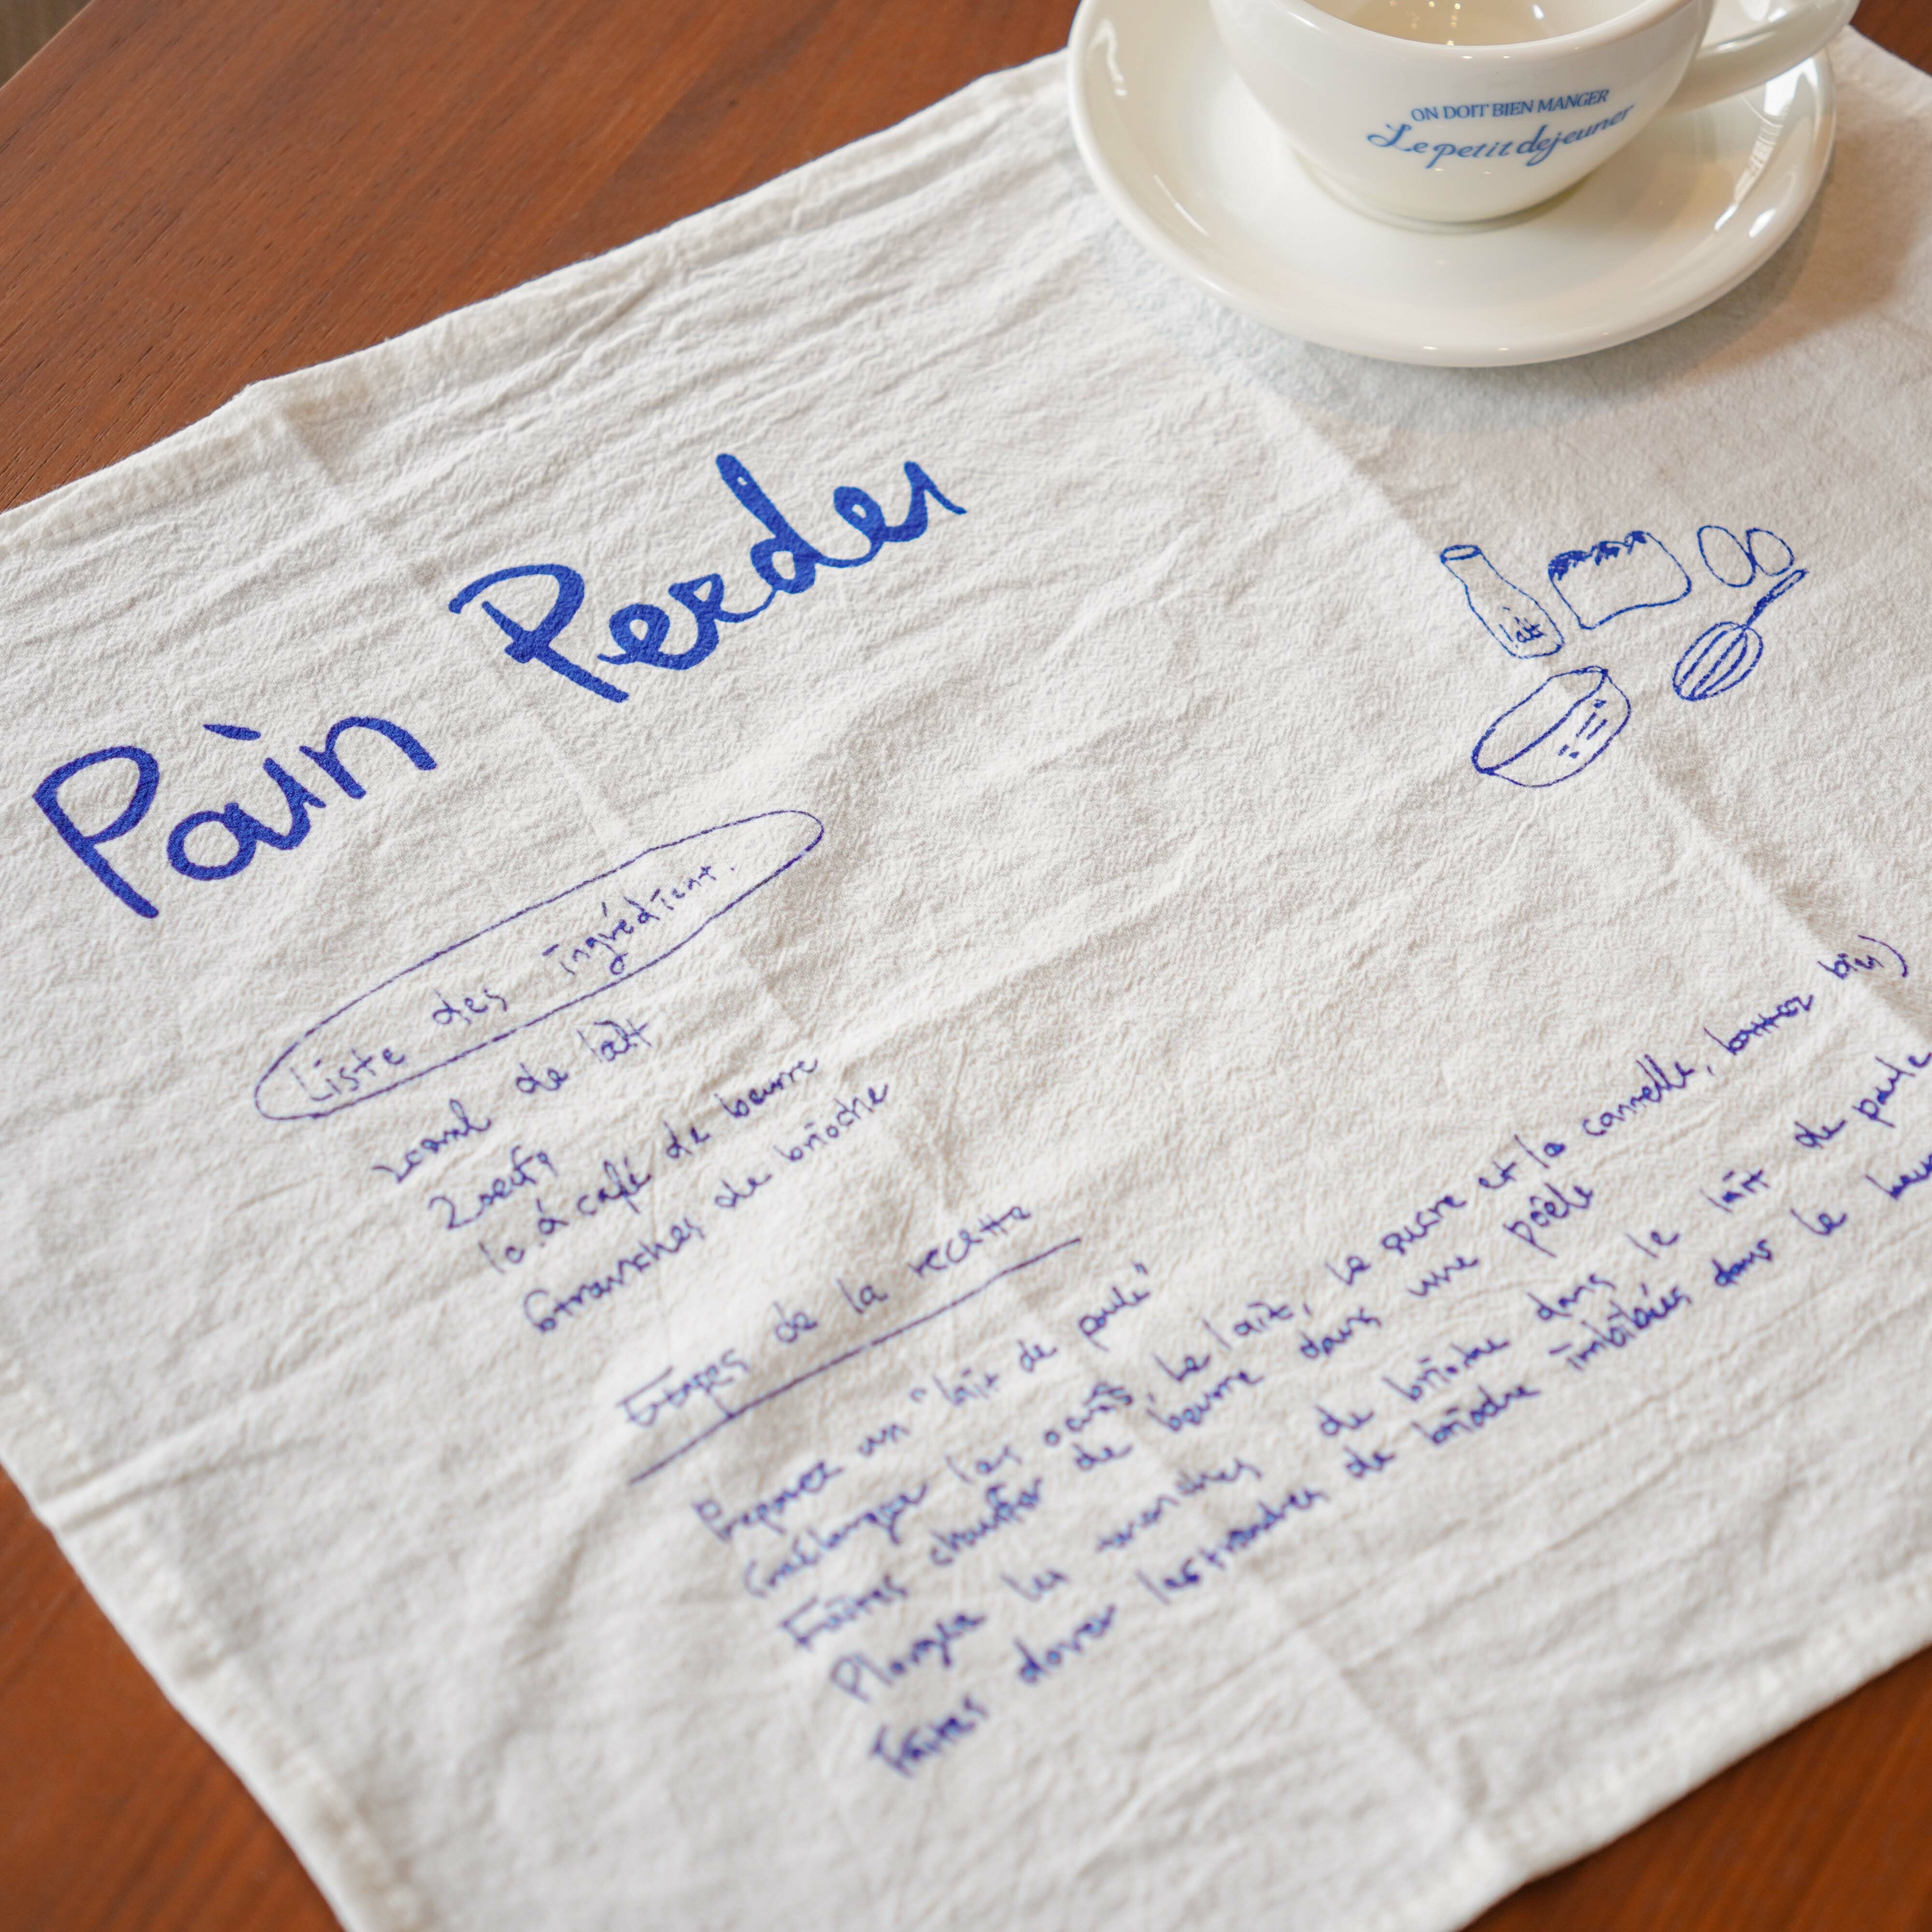 ON DOIT BIEN MANGER
Le petit dejeuner
Pain Perdu
lait
Liste des ingrédient.
de lait
2 oeufs
1c. à café de beurre
6 tranches de brioche
Etapes de la recette
Preparez un "lait de poule"
(mélangez les oeufs, le lait, le sucre et la cannelle, battez bien)
Faites chauffer de beurre dans une poêle
Plongez les tranches de brioche dans le lait de poule
Faites dorer les tranches de brioche imbibées dans le